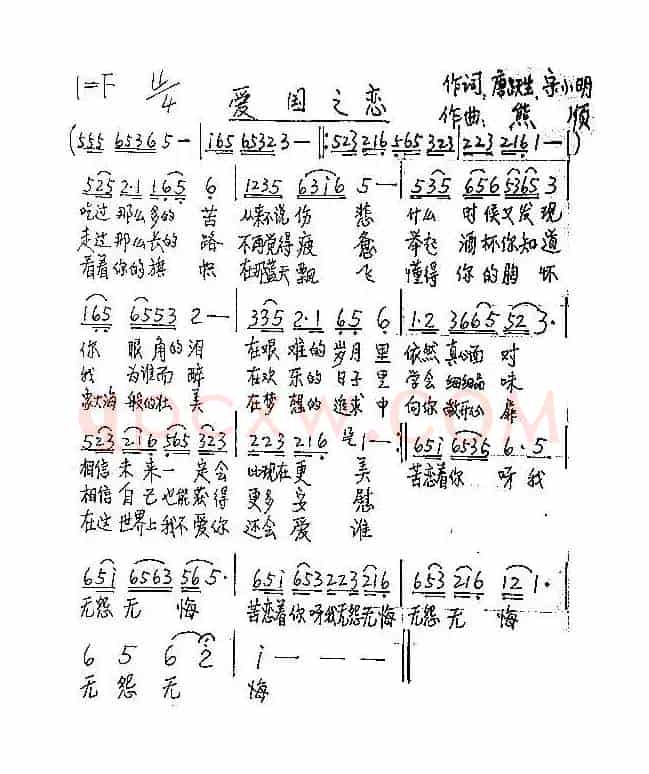 1=F 4/4 爱国之恋 作词:唐跃生、宋小明
作曲: 熊 顺
(555 65365- | i65 65323- |: 523216 565323 | 223216 1- |)
525 2·1 165 6 | 1235 63i6 5- | 535 656 5365 3
吃过那么多的苦 从来不说伤 悲 什么 时候又发现
走过那么长的路 不再觉得疲 惫 举起 酒杯你知道
看着你的旗 帜 在那蓝天飘 飞 懂得 你的胸 怀
165 6553 2- | 335 2·1 65 6 | 1·2 3665 52 3·
你 眼角的泪 在艰难的岁月里 依然真心面 对
我 为谁而醉 在欢乐的日子里 学会细细品 味
象大海般的壮 美 在梦想的追求中 向你敞开心 扉
523 216 565 323 | 223 216 是 1- | 65i 6535 6·5
相信未来一 定会 比现在更 美 苦恋着你 呀我
相信自己也能获得 更多安 慰
在这世界上我不爱你 还会爱 谁
65i 6563 56 5· | 65i 653 223 216 | 653 216 12 1·
无怨无 悔 苦恋着你呀我无怨无悔 无怨无 悔
6 5 6 2 | i - - -
无 怨 无 悔
QPCXW.COM